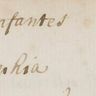 nfantes
phia